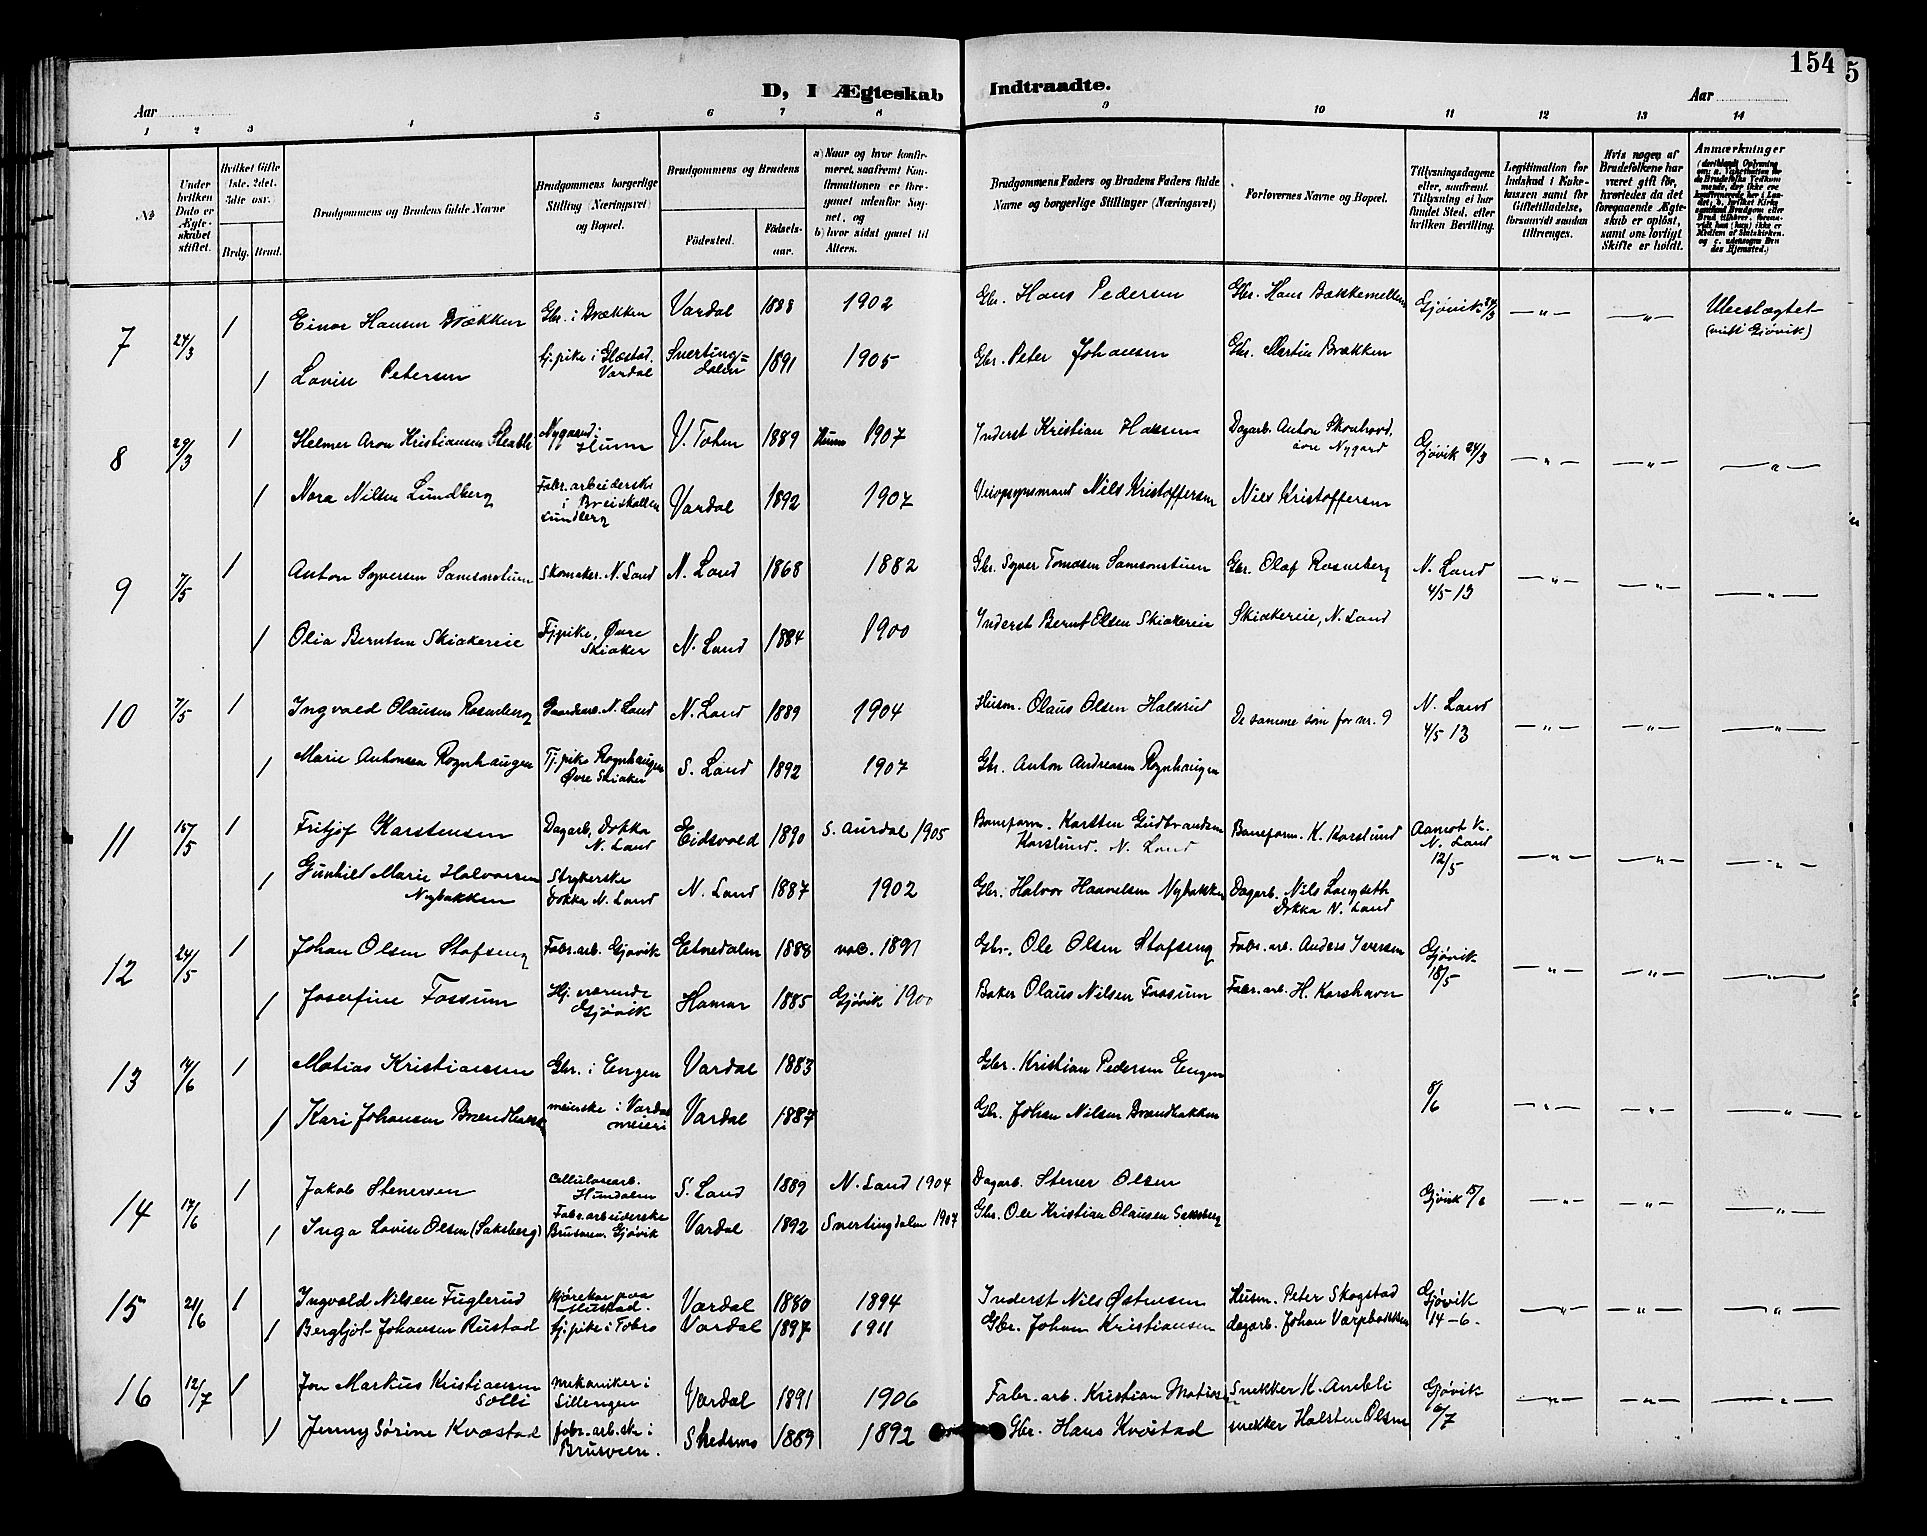 154
5
D, I Ægteskab Indtraadte.
Aar
Aar
1 2 3 4 5 6 7 8 9 10 11 12 13 14
No
Under hvilken Dato er Ægteskabet stiftet.
Hvilket Gifte 1ste. 2det. 3die osv.
Brdg. Brud.
Brudgommens og Brudens fulde Navne
Brudgommens borgerlige Stilling (Næringsvei) og Bopæl.
Brudgommens og Brudens
Födested.
Födselsaar.
a) Naar og hvor konfirmeret, saafremt Konfirmationen er foregaaet udenfor Sognet, og
b) hvor sidst gaaet til Alters.
Brudgommens Faders og Brudens Faders fulde Navne og borgerlige Stillinger (Næringsvei)
Forlovernes Navne og Bopæl.
Tillysningsdagene eller, saafremt Tillysning ei har fundet Sted, efter hvilken Bevilling.
Legitimation for Indskud i Enkekassen samt for Giftetilladelse, forsaavidt saadan tiltrænges.
Hvis nogen af Brudefolkene har været gift før, hvorledes da det foregaaende Ægteskab er opløst, samt om lovligt Skifte er holdt.
Anmærkninger
7 24/3 1 Einar Hansen Brækken Gbr. i Brækken Vardal 1888 1902 Gbr. Hans Pedersen Gbr. Hans Bækkemellem Gjøvik 24/3 —"— —"— Ubeslægtet
(viet i Gjøvik)
1 Lovise Petersen tj.pike i Glæstad, Vardal Snertingdalen 1891 1905 Gbr. Peter Johansen Gbr. Martin Brækken
8 29/3 1 Helmer Aron Kristiansen Nygaard i Hunn V. Toten 1889 Hunn 1907 Inderst Kristian Hansen Dagarb. Anton øvre Nygard Gjøvik 24/3 —"— —"— —"—
1 Nora Nilsen Lundberg Fabr.arbeiderske i Breiskallen Lundberg Vardal 1892 1907 Veiopsynsmand Nils Kristoffersen Nils Kristoffersen
9 7/5 1 Anton Syversen Samsonstuen Skomaker. N. Land N. Land 1868 1882 Gbr. Syver Tomasen Samsonstuen Gbr. Olaf Roseneberg N. Land 4/5 13 —"— —"— —"—
1 Olia Berntsen Skiakereie Tj.pike, Øvre Skiaker N. Land 1884 1900 Inderst Bernt Olsen Skiakereie Skiakereie, N. Land
10 7/5 1 Ingvald Olausen Rosenberg Gaardarb. N. Land N. Land 1889 1904 Husm. Olaus Olsen Halsrud De samme som for nr. 9 N. Land 4/5 13 —"— —"— —"—
1 Marie Antonsen Rognhaugen Tj.pike Rognhaugen Øvre Skiaker S. Land 1892 1907 Gbr. Anton Andreasen Rognhaugen
11 15/5 1 Fritjof Karstensen Dagarb, Dokka N. Land Eidsvold 1890 S. Aurdal 1905 Baneform. Karsten Gudbrandsen Korslund. N. Land Baneform. K. Korslund Aamot k. N. Land 12/5 —"— —"— —"—
1 Gunhild Marie Halvorsen Nybakken Strykerske Dokka N. Land N. Land 1887 1902 Gbr. Halvor Haavelsen Nybakken Dagarb. Nils Langseth Dokka N. Land
12 24/5 1 Johan Olsen Stafseng Fabr.arb. Gjøvik Etnedalen 1888 vac. 1891 Gbr. Ole Olsen Stafseng Fabr. arb. Anders Iversen Gjøvik 18/5 —"— —"— —"—
1 Josefine Fossum Hj.værende Gjøvik Hamar 1885 Gjøvik 1900 Baker Olaus Nilsen Fossum Fabr. arb. H. Korshavn
13 14/6 1 Matias Kristiansen Gbr. i Engen Vardal 1883 Gbr. Kristian Pedersen Engen 8/6 —"— —"— —"—
1 Kari Johansen Brændbakken meierske i Vardal meieri Vardal 1887 Gbr. Johan Nilsen Brændbakken
14 17/6 1 Jakob Stenersen Cellulosearb. Hundalen S. Land 1889 N. Land 1904 Dagarb. Stener Olsen Gjøvik 15/6 —"— —"— —"—
1 Inga Lovise Olsen (Saksberg) Fabr.arbeiderske Brusveen, Gjøvik Vardal 1892 Snertingdalen 1907 Gbr. Ole Kristian Olausen Saksberg
15 21/6 1 Ingvald Nilsen Fuglerud Kjørekar paa Hustad. Vardal 1880 1894 Inderst Nils Østensen Husm. Peter Skogstad Gjøvik 14-6. —"— —"— —"—
1 Bergljot Johansen Rustad tj.pike i Fobro Vardal 1897 1911 Gbr. Johan Kristiansen dagarb. Johan Varpbakken
16 12/7 1 Jon Markus Kristiansen Solli Mekaniker i Sillengen Vardal 1891 1906 Fabr. arb. Kristian Matiasen Snekker K. Ambli Gjøvik 6/7 —"— —"— —"—
1 Jenny Sørine Kvæstad fabr.arb.ske i Brusveen. Skedsmo 1889 1892 Gbr. Hans Kvæstad snekker Halsten Olsen